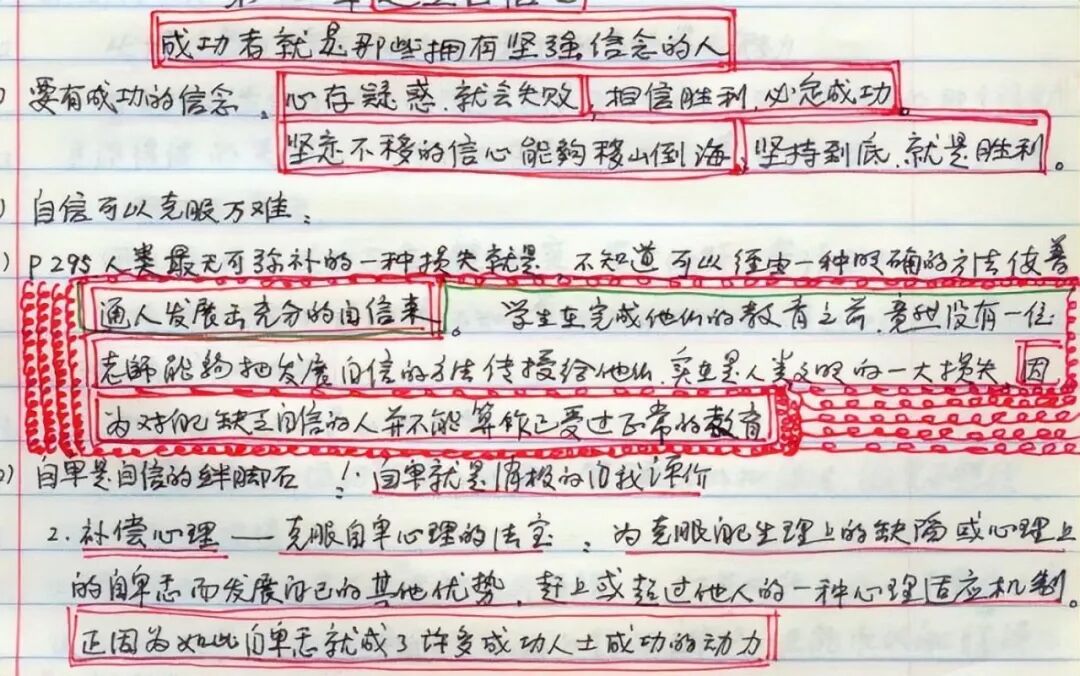 成功者就是那些拥有坚强信念的人
要有成功的信念、心存疑惑,就会失败,相信胜利,必定成功。
坚定不移的信心能够移山倒海,坚持到底,就是胜利。
自信可以克服万难:
P295人类最无可弥补的一种损失就是,不知道可以经由一种明确的方法使普
通人发展出充分的自信来。学生在完成他们的教育之前,竟然没有一位
老师能够把发展自信的方法传授给他们,实在是人类文明的一大损失,因
为对自己缺乏自信的人并不能算作已受过正常的教育
自卑是自信的绊脚石 1.自卑就是消极的自我评价
2.补偿心理——克服自卑心理的法宝:为克服自己生理上的缺陷或心理上
的自卑感而发展自己的其他优势,赶上或超过他人的一种心理适应机制。
正因为如此自卑感就成了许多成功人士成功的动力